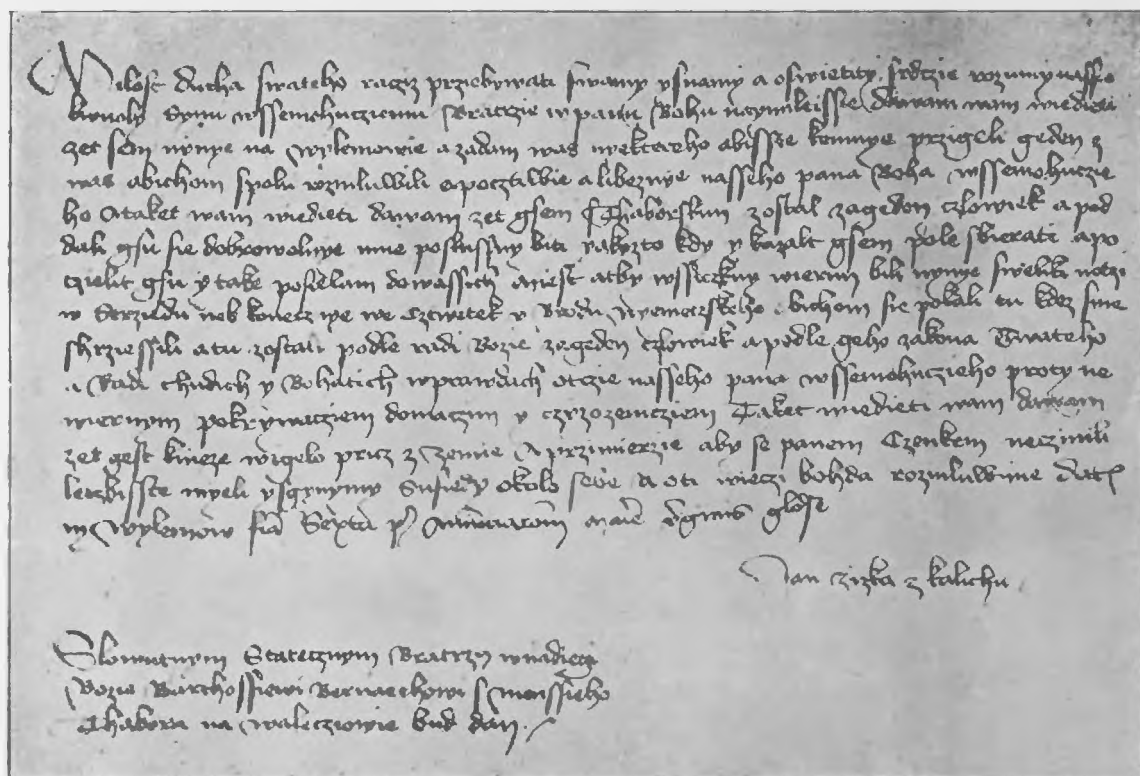 Milost ducha swateho racz prziebywati swamy ysnamy a oswietity srdczie rozumy nasse
kwuoly Synu wssemohucziemu Bratrzie w panu Bohu naymileissie dawam wam wiedieti
zet sem nynye na Wylemowie a zadam was nyektereho abisste kemnye przigeli geden z
was abichom spolu rozmluwili opocztiwie a libeznye nasseho pana Boha wssemohuczie
ho A taket wam wiedieti dawam zet gsem s Thaborskim zostal zageden czlowiek a pod
dali gsu sie dobrowolnye mne poslussny biti yakyzto kdy y kazalt gsem pole sbierati apo
czielit gsu y take posielam dowassich miest atby wssiczkny wierni bili nynye swelikv noczi
w Strziedu neb konecz nye we Cztwrtek v Brodu Nyemeczskeho bichom sie potkali tu kdez sme
shrziessili a tu zostati podle radi Bozie zageden czlowiek a podle geho zakona Swateho
a Radi chudich y Bohatich wprawdach otczie nasseho pana wssemohuczieho proty ne
wiernym pokrywacziem domaczim y czyzozemcziem Taket wiedieti wam dawam
zet gest knieze wigelo pricz z Zemie A przimierzie aby se panem Czenkem neczinili
leczbisste myeli y sgynymy Susiedy okolo sebe A oti wieczi bohda rozmluwime Dat
in Wylemow feria Sexta post Annuncciacionem Marie virginis gloriose
Jan Zizka z kalichu
Slowutnym Statecznym Bratrzy wnadiegi
Bozie Barthossiewi Bernarthowi s menssieho
Thabora na Waleczowie bud dan